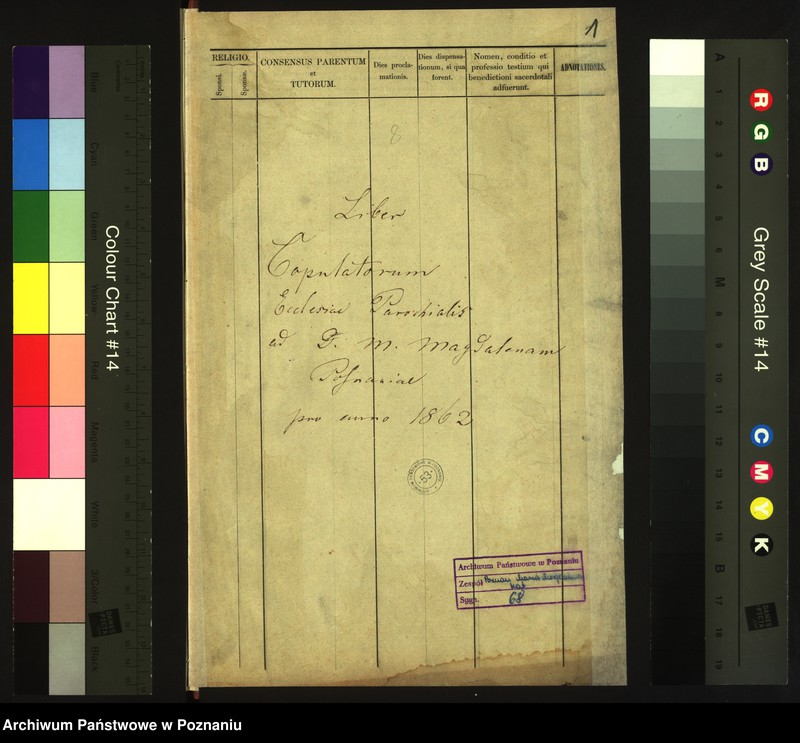 1
RELIGIO.
Sponsi.
Sponsae.
CONSENSUS PARENTUM
et
TUTORUM.
Dies procla-
mationis.
Dies dispensa-
tionum, si qua
forent.
Nomen, conditio et
professio testium qui
benedictioni sacerdotali
adfuerunt.
ADNOTATIONES.
8
Liber
Copulatorum
Ecclesiae Parochialis
ad D. M. Magdalenam
Posnaniae
pro anno 1862
53
Archiwum Państwowe w Poznaniu
Zespół Poznań Maria Magdalena
kat
Sygn. 68
Colour Chart #14
Blue
Cyan
Green
Yellow
Red
Magenta
White
3/Color
Black
Grey Scale #14
A
1
2
3
4
5
6
M
8
9
10
11
12
13
14
15
B
17
18
19
R
G
B
C
M
Y
K
DANES
PICTA
Archiwum Państwowe w Poznaniu